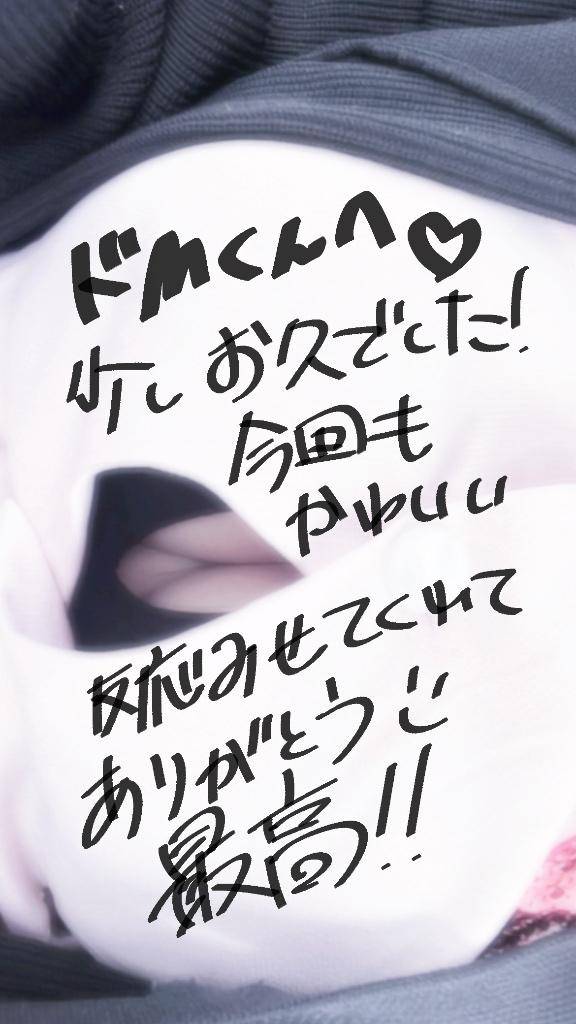 ドMくんへ♡
少しお久でした！
今回も
かわいい
反応みせてくれて
ありがとう
最高！！